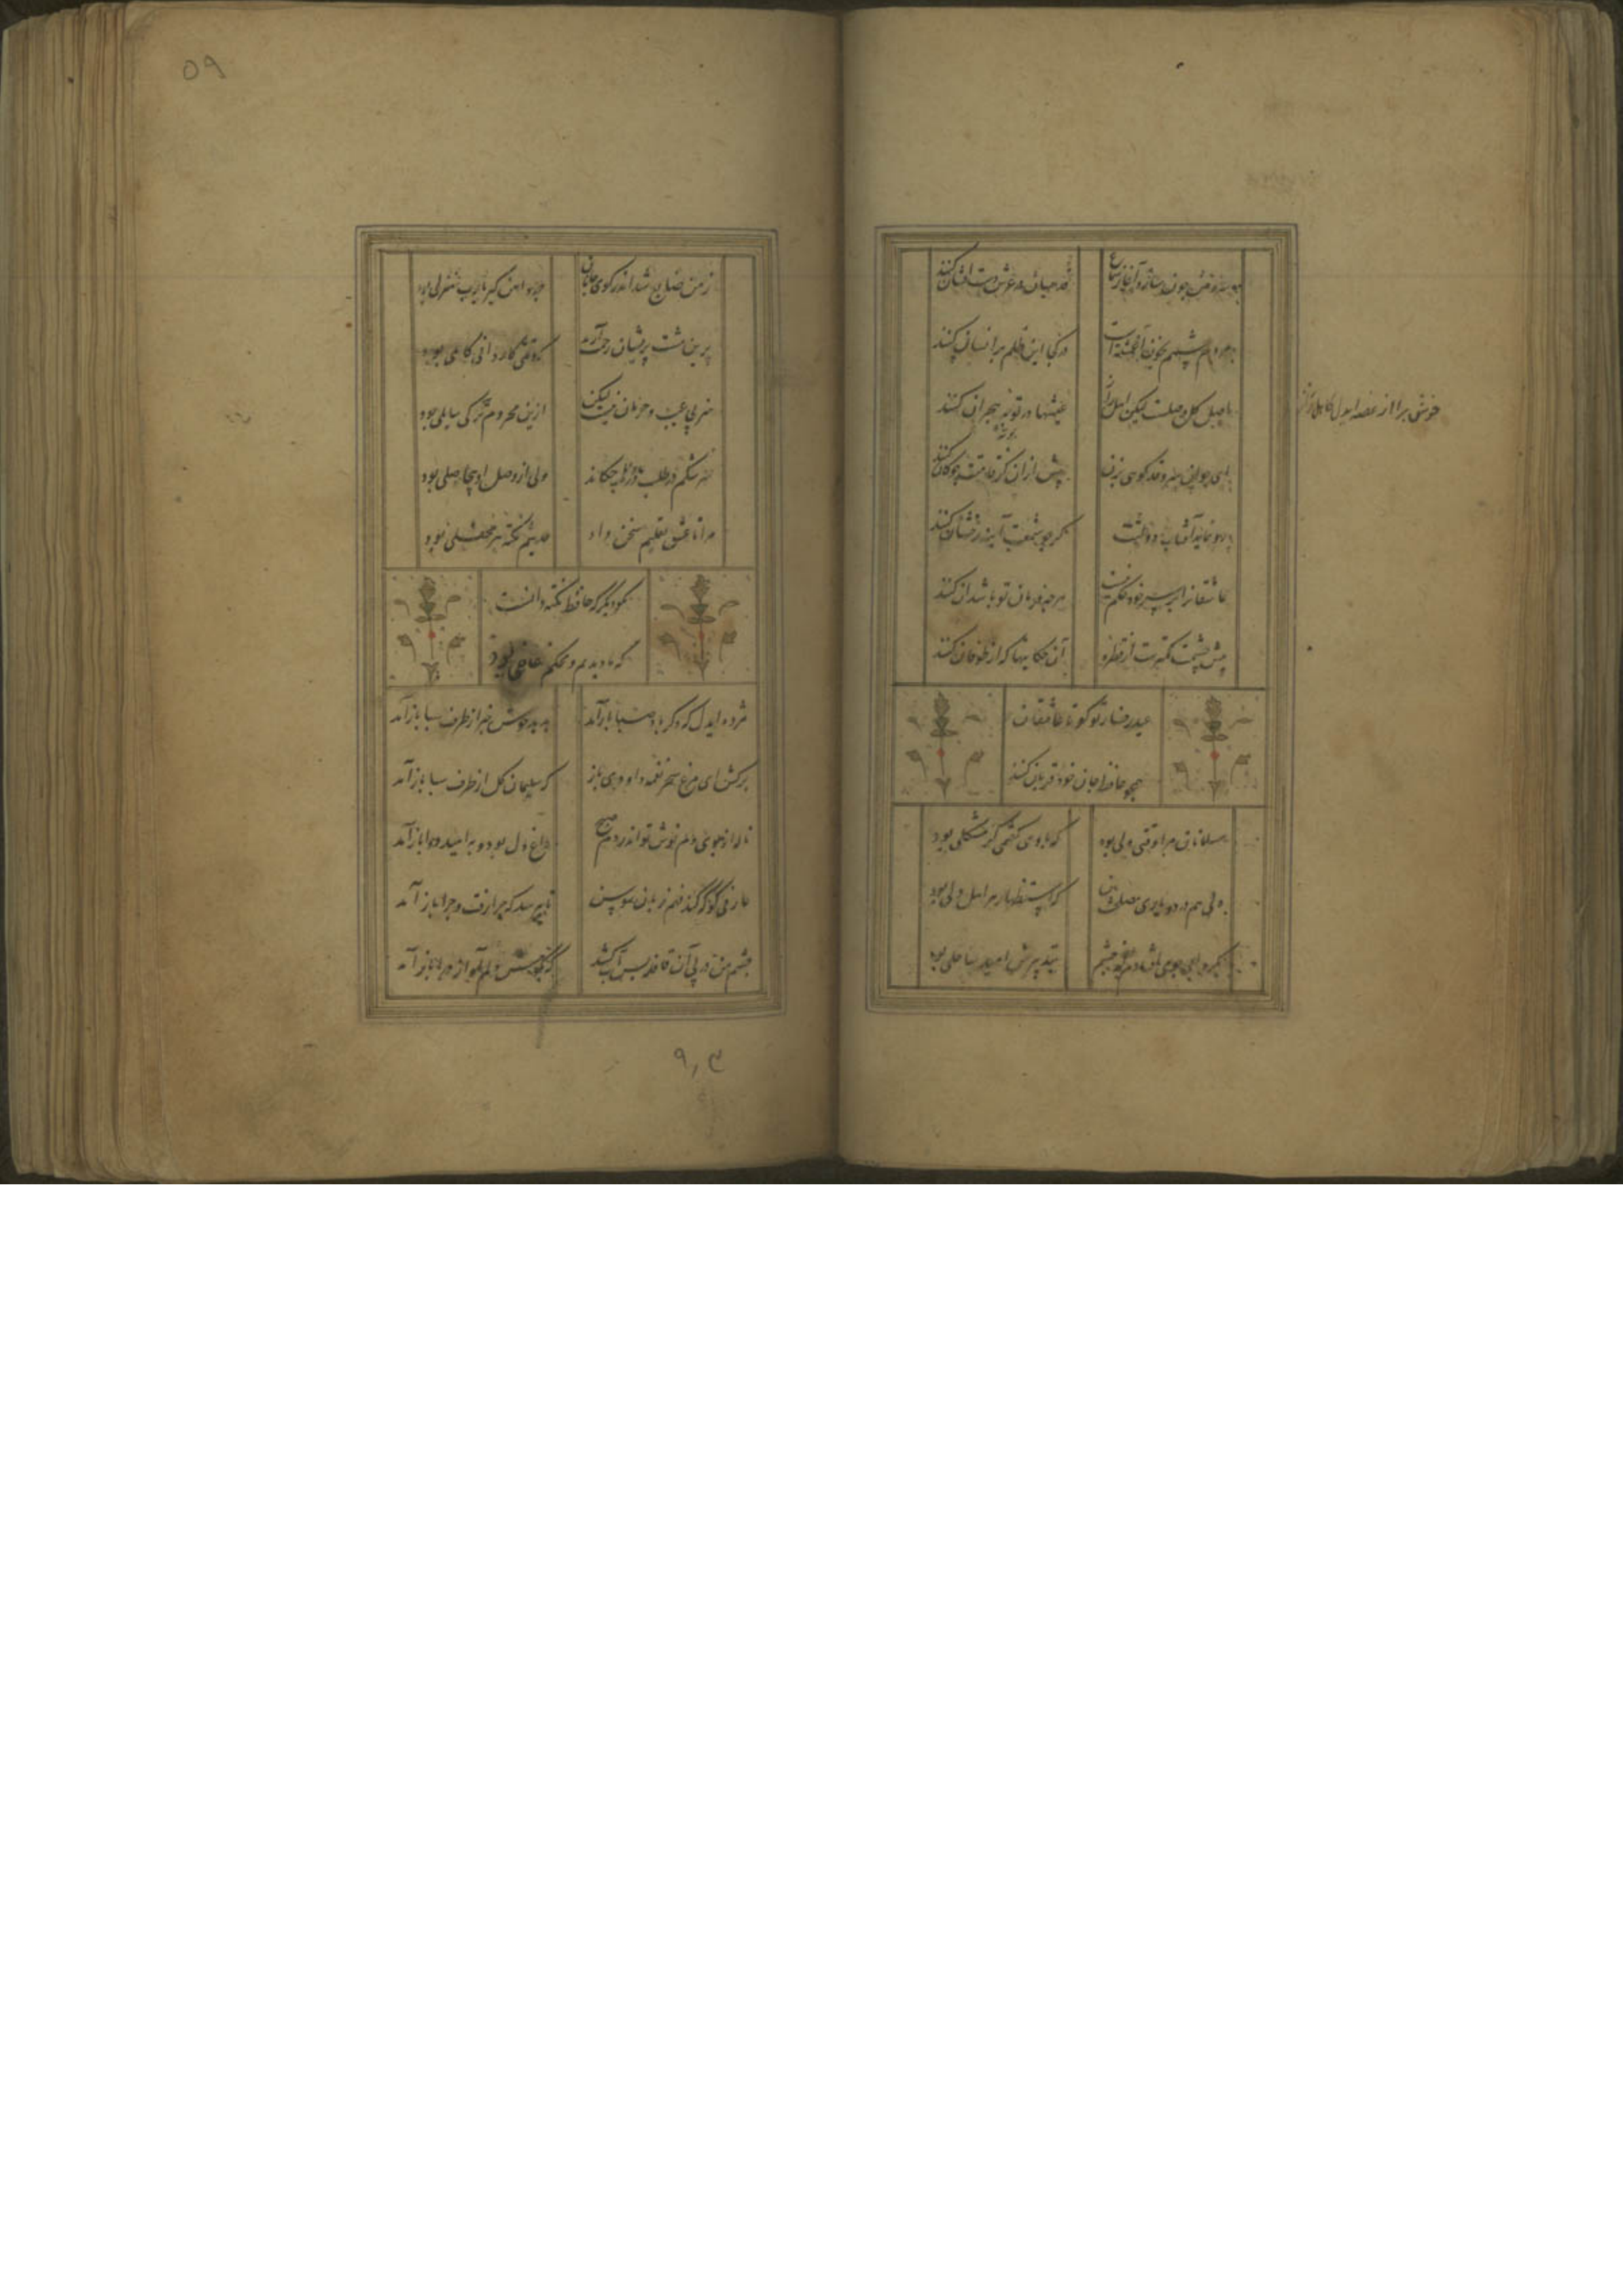 چون سازد آغاز سماع قدسیان در عرش دست افشان کنند
مردم چشمم بخون آغشته است در کجا این ظلم بر انسان کنند
خوش برا از غصه ایدل کاهل راز
حاصل کل وصلت لیکن اهل راز عیشها در بوته هجران کنند
ای جوان سرو قد گویی بزن پیش ازان کز قامتت چوگان کنند
رو نماید آفتاب دولتت گر چو آینه رخشان کنند
عاشقانرا بر سر خود حکم نیست هرچه فرمان تو باشد آن کنند
پیش چشمت کمترست از قطره آن حکایتها که از طوفان کنند
عید رخسار تو کو تا عاشقان
همچو حافظ جان خود قربان کنند
مسلمانان مرا وقتی دلی بود که با وی گفتمی گر مشکلی بود
دلی همدرد و یاری مصلحت بین که استظهار هر اهل دلی بود
بگردابی چو می افتادم از چشم بتدبیرش امید ساحلی بود
۵۹
ز من ضایع شد اندر کوی جانان چه دامن گیر یارب منزلی بود
برین مست پریشان رحمت آرید که وقتی کاردانی کاملی بود
هنر بی عیب و حرمان نیست لیکن ازین محروم تر کی سایلی بود
سرشکم در طلب درها چکاند ولی از وصل او بیحاصلی بود
مرا تا عشق تعلیم سخن داد حدیثم نکته هر محفلی بود
مگو دیگر که حافظ نکته دانست
که ما دیدیم و محکم غافلی بود
مژده ایدل که دگر باد صبا باز آمد هدهد خوش خبر از طرف سبا باز آمد
برکش ای مرغ سحر نغمه داودی باز که سلیمان گل از طرف سبا باز آمد
لاله از بوی دم خوش تو اندر دم صبح داغ دل بود و به امید دوا باز آمد
عارفی کو که کند فهم زبان سوسن تا بپرسد که چرا رفت و چرا باز آمد
چشم من در پی آن قافله بس آب کشید تا بگوش دلم آواز درا باز آمد